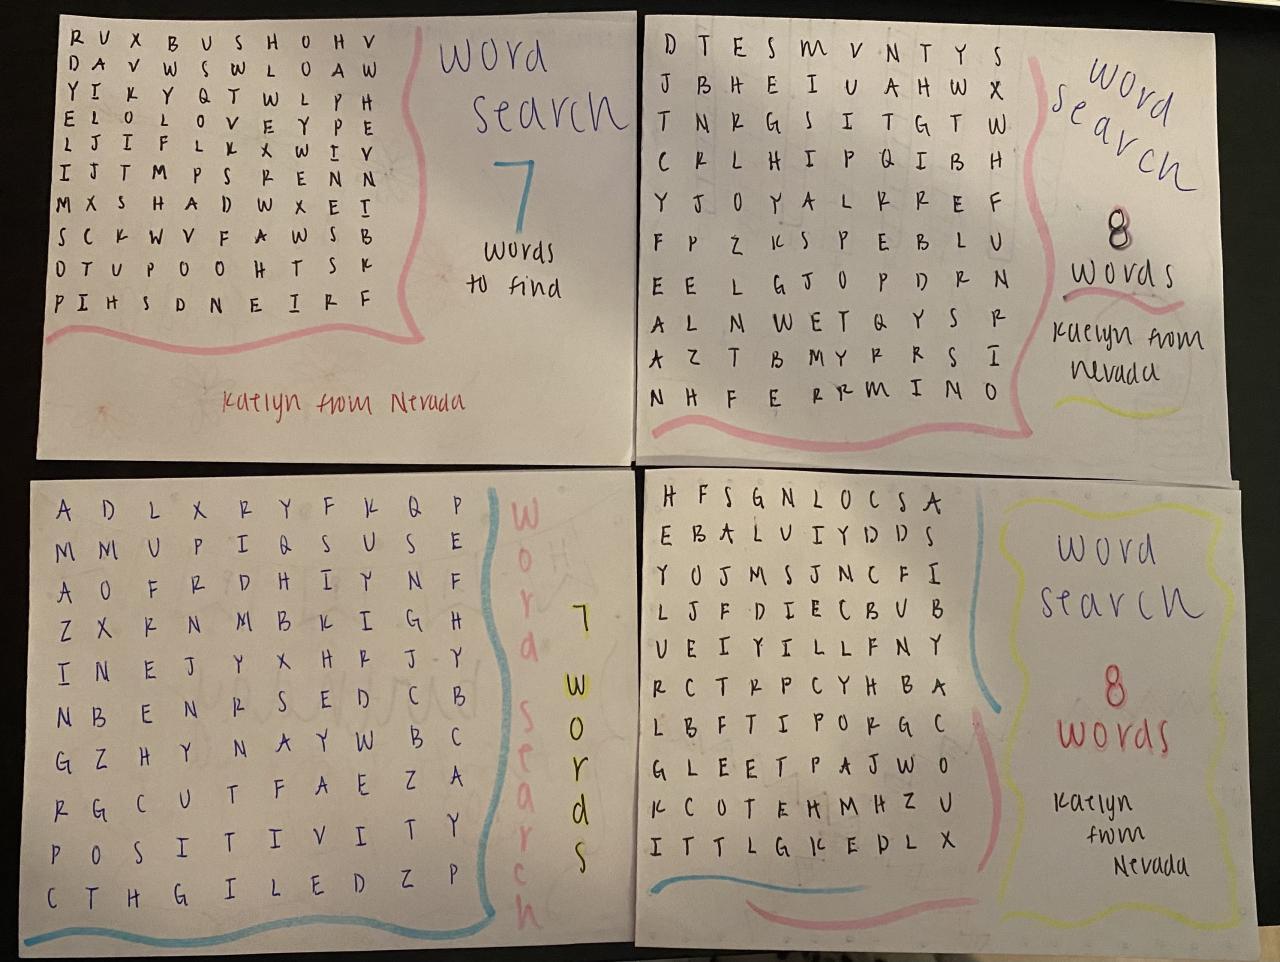 R U X B U S H O H V
D A V W S W L O A W
Y I K Y Q T W L P H
E L O L O V E Y P E
L J I F L K X W I V
I J T M P S R E N N
M X S H A D W X E I
S C K W V F A W S B
O T U P O O H T S K
P I H S D N E I R F
word
search
7
words
to find
Kaelyn from Nevada
D T E S M V N T Y S
J B H E I U A H W X
T N R G S I T G T W
C R L H I P Q I B H
Y J O Y A L R R E F
F P Z K S P E B L U
E E L G J O P D R N
A L N W E T Q Y S R
A Z T B M Y R R S I
N H F E R R M I N O
word
search
8
words
Kaelyn from
nevada
A D L X R Y F K Q P
M M U P I Q S U S E
A O F R D H I Y N F
Z X R N M B K I G H
I N E J Y X H R J Y
N B E N R S E D C B
G Z H Y N A Y W B C
R G C U T F A E Z A
P O S I T I V I T Y
C T H G I L E D Z P
word search
7 words
H F S G N L O C S A
E B A L U I Y D D S
Y O J M S J N C F I
L J F D I E C B U B
U E I Y I L L F N Y
R C T R P C Y H B A
L B F T I P O R G C
G L E E T P A J W O
K C O T E H M H Z U
I T T L G K E D L X
word
search
8
words
Kaelyn
from
Nevada